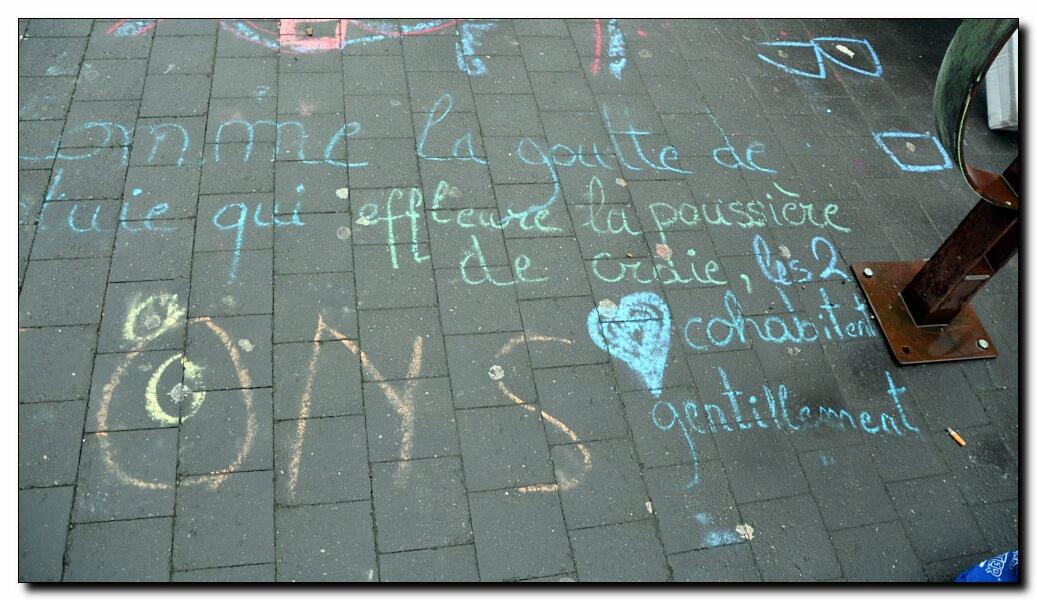 omme la goutte de
pluie qui effleure la poussière
de craie, les 2
cohabitent
gentillement